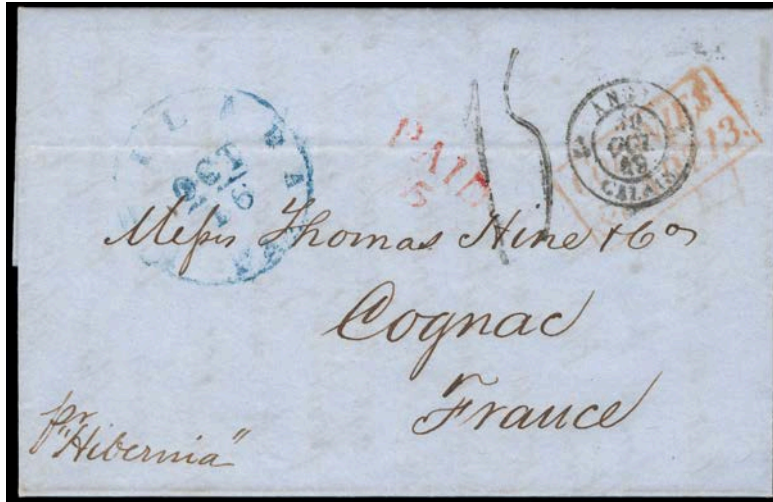 OCT
16
PAID
5
15
ANGL.
OCT
49
CALAIS
13.
Mess Thomas Hine & Co
Cognac
France
pr
"Hibernia"